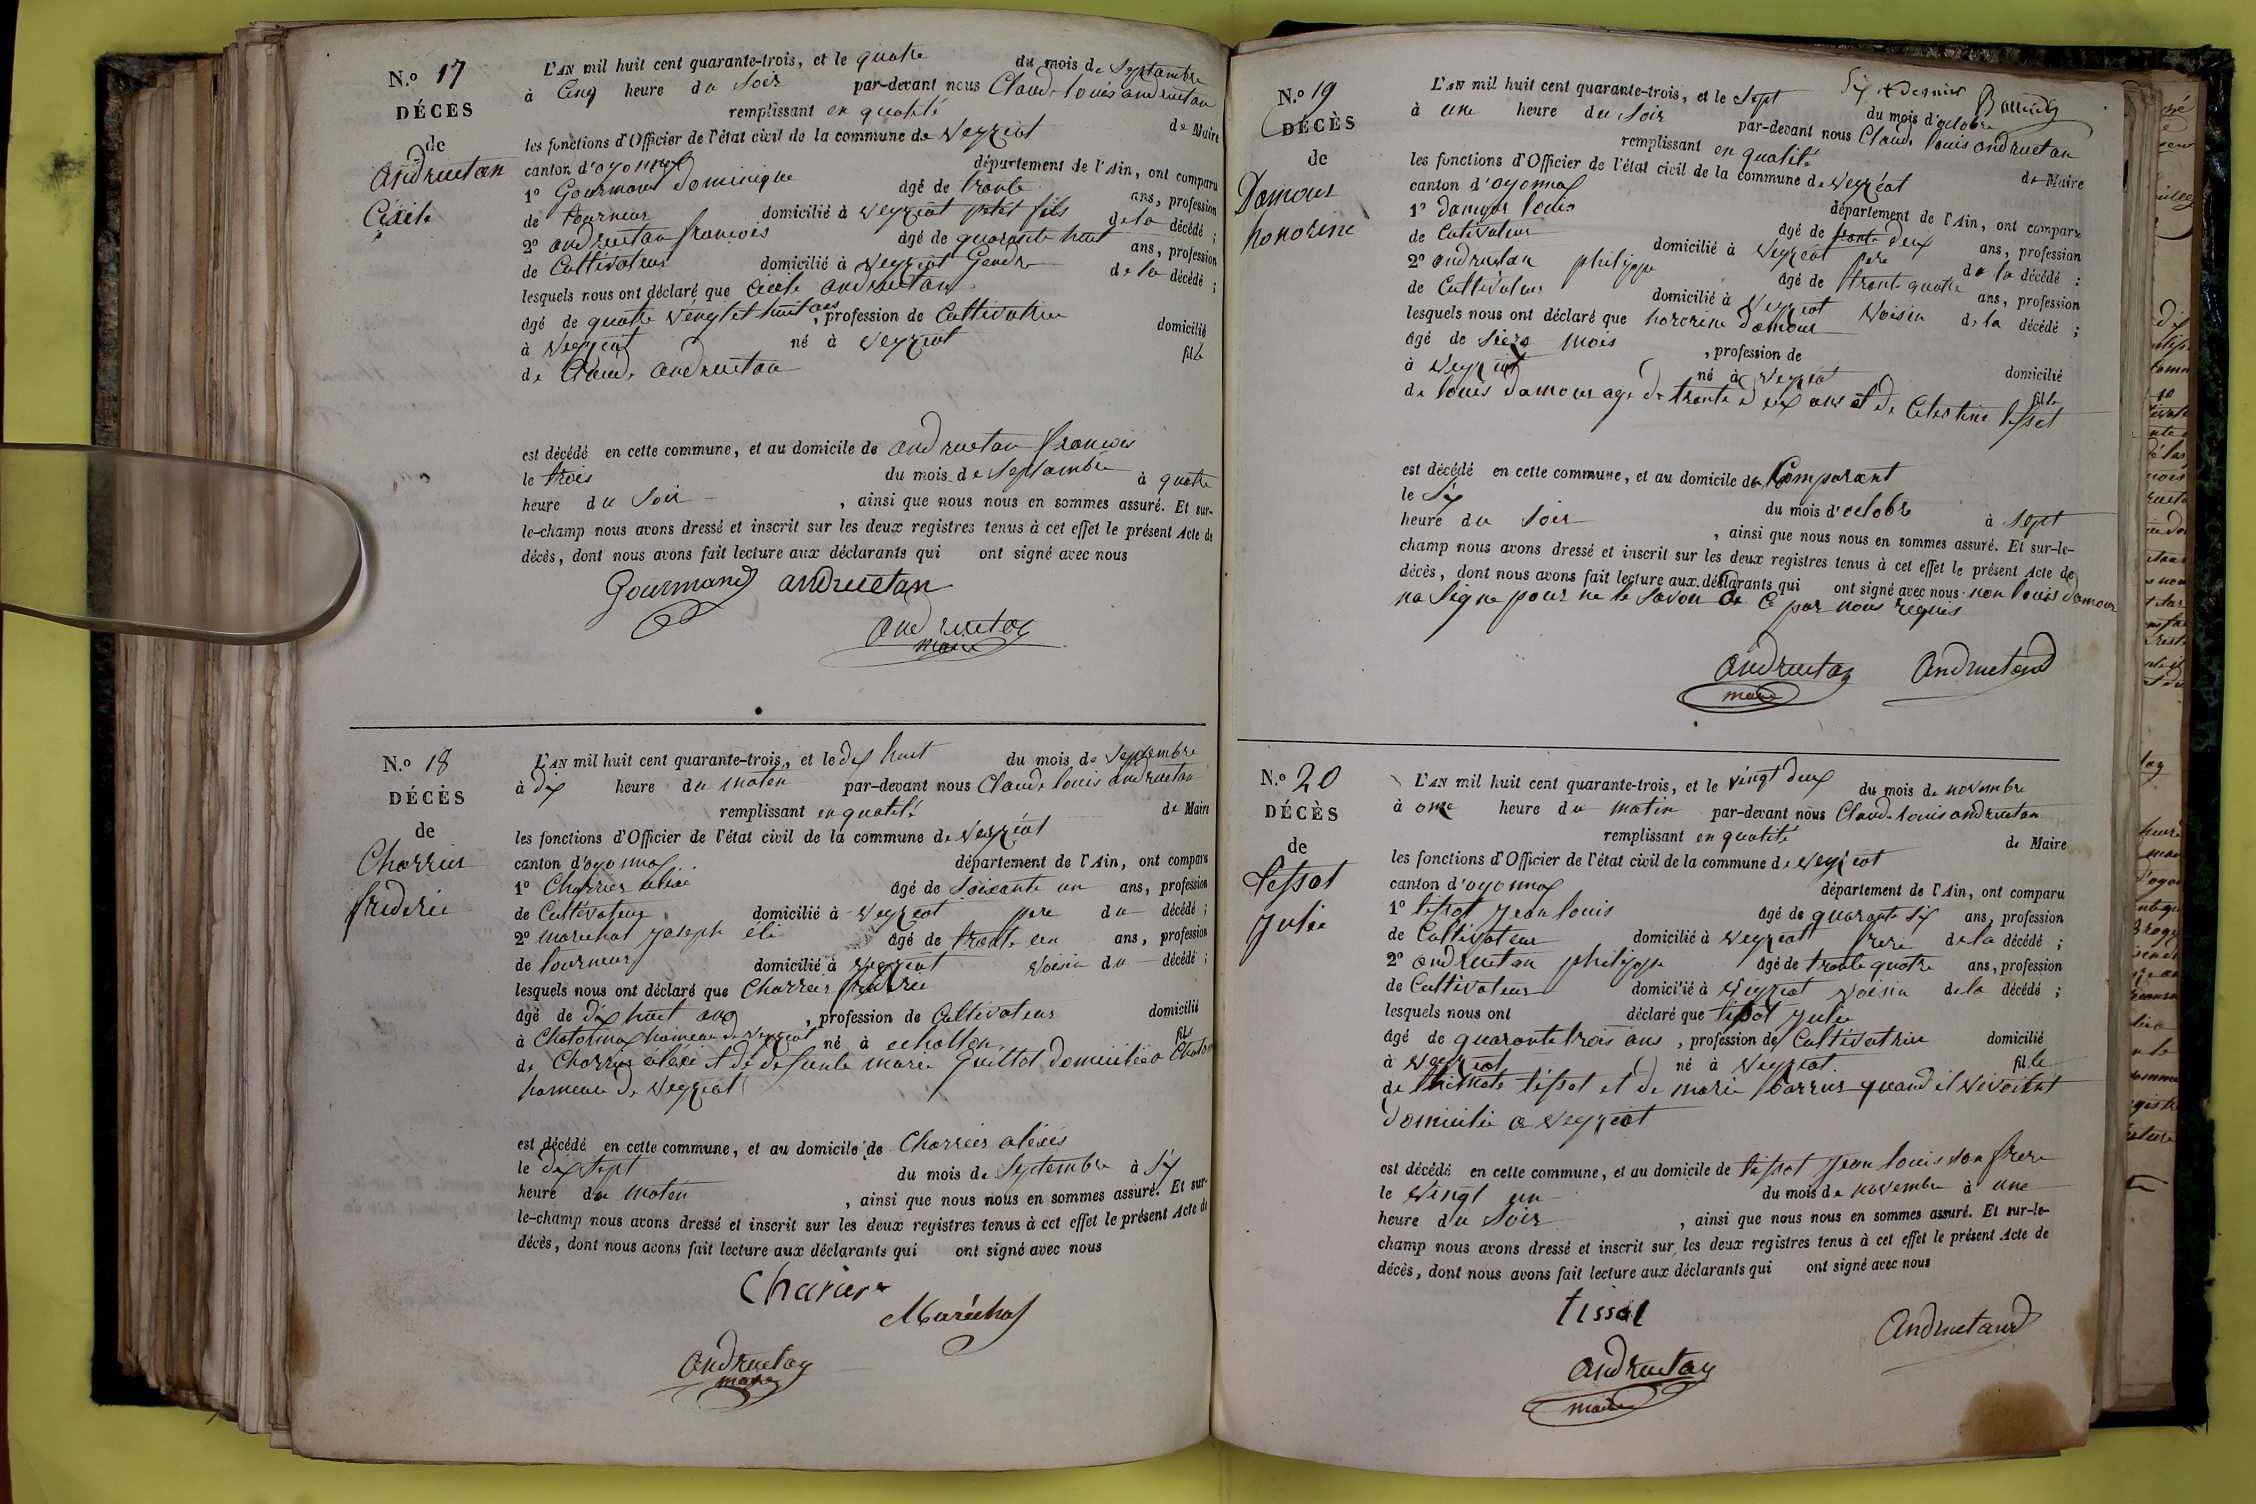 N.º 17
DÉCES
de
Andruetan
Cécile
L'AN mil huit cent quarante-trois, et le quatre du mois de Septembre
à Cinq heure du Soir par-devant nous Claude louis andruetan
remplissant en qualité de Maire
les fonctions d'Officier de l'état civil de la commune de Veyziat
canton d'oyonnax département de l'Ain, ont comparu
1º Gourmand Dominique âgé de trente ans, profession
de tourneur domicilié à Veyziat petit fils de la décédé ;
2º andruetan françois âgé de quarante huit ans, profession
de Cultivateur domicilié à Veyziat Gendre de la décédé ;
lesquels nous ont déclaré que Cécile andruetan
âgé de quatre vingt et huit ans, profession de Cultivatrice domicilié
à Veyziat né à Veyziat fille
de Claude andruetan
est décédé en cette commune, et au domicile de andruetan françois
le trois du mois de Septembre à quatre
heure du Soir, ainsi que nous nous en sommes assuré. Et sur-
le-champ nous avons dressé et inscrit sur les deux registres tenus à cet effet le présent Acte de
décès, dont nous avons fait lecture aux déclarants qui ont signé avec nous
Gourmand andruetan
andruetan
maire
N.º 18
DÉCÈS
de
Charrier
frédéric
L'AN mil huit cent quarante-trois, et le dix huit du mois de Septembre
à dix heure du maten par-devant nous Claude louis andruetan
remplissant en qualité de Maire
les fonctions d'Officier de l'état civil de la commune de Veyziat
canton d'oyonnax département de l'Ain, ont comparu
1º Charrier aléxi âgé de Soixante un ans, profession
de Cultivateur domicilié à Veyziat pere du décédé ;
2º marechal joseph éli âgé de trente un ans, profession
de tourneur domicilié à Veyziat Voisin du décédé ;
lesquels nous ont déclaré que Charrier frédéric
âgé de dix huit ans, profession de Cultivateur domicilié
à Chatonnax hameau de Veyziat né à echallon fils
de Charrier aléxi et de défunte marie Guillot domiciliée a Chaton
hameau de Veyziat
est décédé en cette commune, et au domicile de Charrier aléxis
le dix Sept du mois de Septembre à Six
heure du maten, ainsi que nous nous en sommes assuré. Et sur-
le-champ nous avons dressé et inscrit sur les deux registres tenus à cet effet le présent Acte de
décès, dont nous avons fait lecture aux déclarants qui ont signé avec nous
Charier
Maréchal
andruetan
maire
Six et dernier
N.º 19
DÉCÈS
de
Damour
honorine
L'AN mil huit cent quarante-trois, et le Sept du mois d'octobre
à une heure du Soir par-devant nous Claude louis andruetan
remplissant en qualité de Maire
les fonctions d'Officier de l'état civil de la commune de Veyziat
canton d'oyonnax département de l'Ain, ont comparu
1º damour louis âgé de trente deux ans, profession
de Cultivateur domicilié à Veyziat Pere de la décédé :
2º andruetan philippe âgé de trente quatre ans, profession
de Cultivateur domicilié à Veyziat Voisin de la décédé ;
lesquels nous ont déclaré que honorine damour
âgé de mois, profession de
à Veyziat né à Veyziat domicilié
de louis damour agé de trente deux ans et de Celestine tissot fille
est décédé en cette commune, et au domicile du Comparant
le Six du mois d'octobre à Sept
heure du Soir, ainsi que nous nous en sommes assuré. Et sur-le-
champ nous avons dressé et inscrit sur les deux registres tenus à cet effet le présent Acte de
décès, dont nous avons fait lecture aux déclarants qui ont signé avec nous non louis damour
na Signé pour ne le Savoir de Ce par nous requis
andruetan Andruetand
maire
N.º 20
DÉCÈS
de
tissot
Julie
L'AN mil huit cent quarante-trois, et le vingt deux du mois de novembre
à onze heure du matin par-devant nous Claude louis andruetan
remplissant en qualité de Maire
les fonctions d'Officier de l'état civil de la commune de Veyziat
canton d'oyonnax département de l'Ain, ont comparu
1º tissot Jean louis âgé de quarante Six ans, profession
de Cultivateur domicilié à Veyziat frere de la décédé ;
2º andruetan philippe âgé de trente quatre ans, profession
de Cultivateur domicilié à Veyziat Voisin de la décédé ;
lesquels nous ont déclaré que tissot Julie
âgé de quarante trois ans, profession de Cultivatrice domicilié
à Veyziat né à Veyziat fille
de tissot et de marie quand il vivoient
domicilié a Veyziat
est décédé en cette commune, et au domicile de tissot Jean louis son frere
le vingt un du mois de novembre à une
heure du Soir, ainsi que nous nous en sommes assuré. Et sur-le-
champ nous avons dressé et inscrit sur les deux registres tenus à cet effet le présent Acte de
décès, dont nous avons fait lecture aux déclarants qui ont signé avec nous
tissot
Andruetand
andruetan
maire